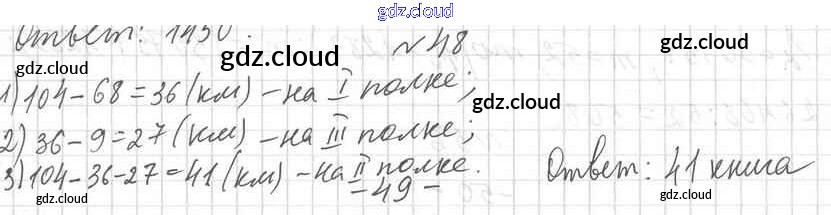 gdz.cloud
Ответ: 1450.
gdz.cloud
№48
gdz.cloud
gdz.cloud
1) 104-68=36 (км) - на I полке;
gdz.cloud
2) 36-9=27 (км) - на III полке;
gdz.cloud
3) 104-36-27=41 (км) - на II полке. Ответ: 41 книга
-49-
gdz.cloud
gdz.cloud
gdz.cloud